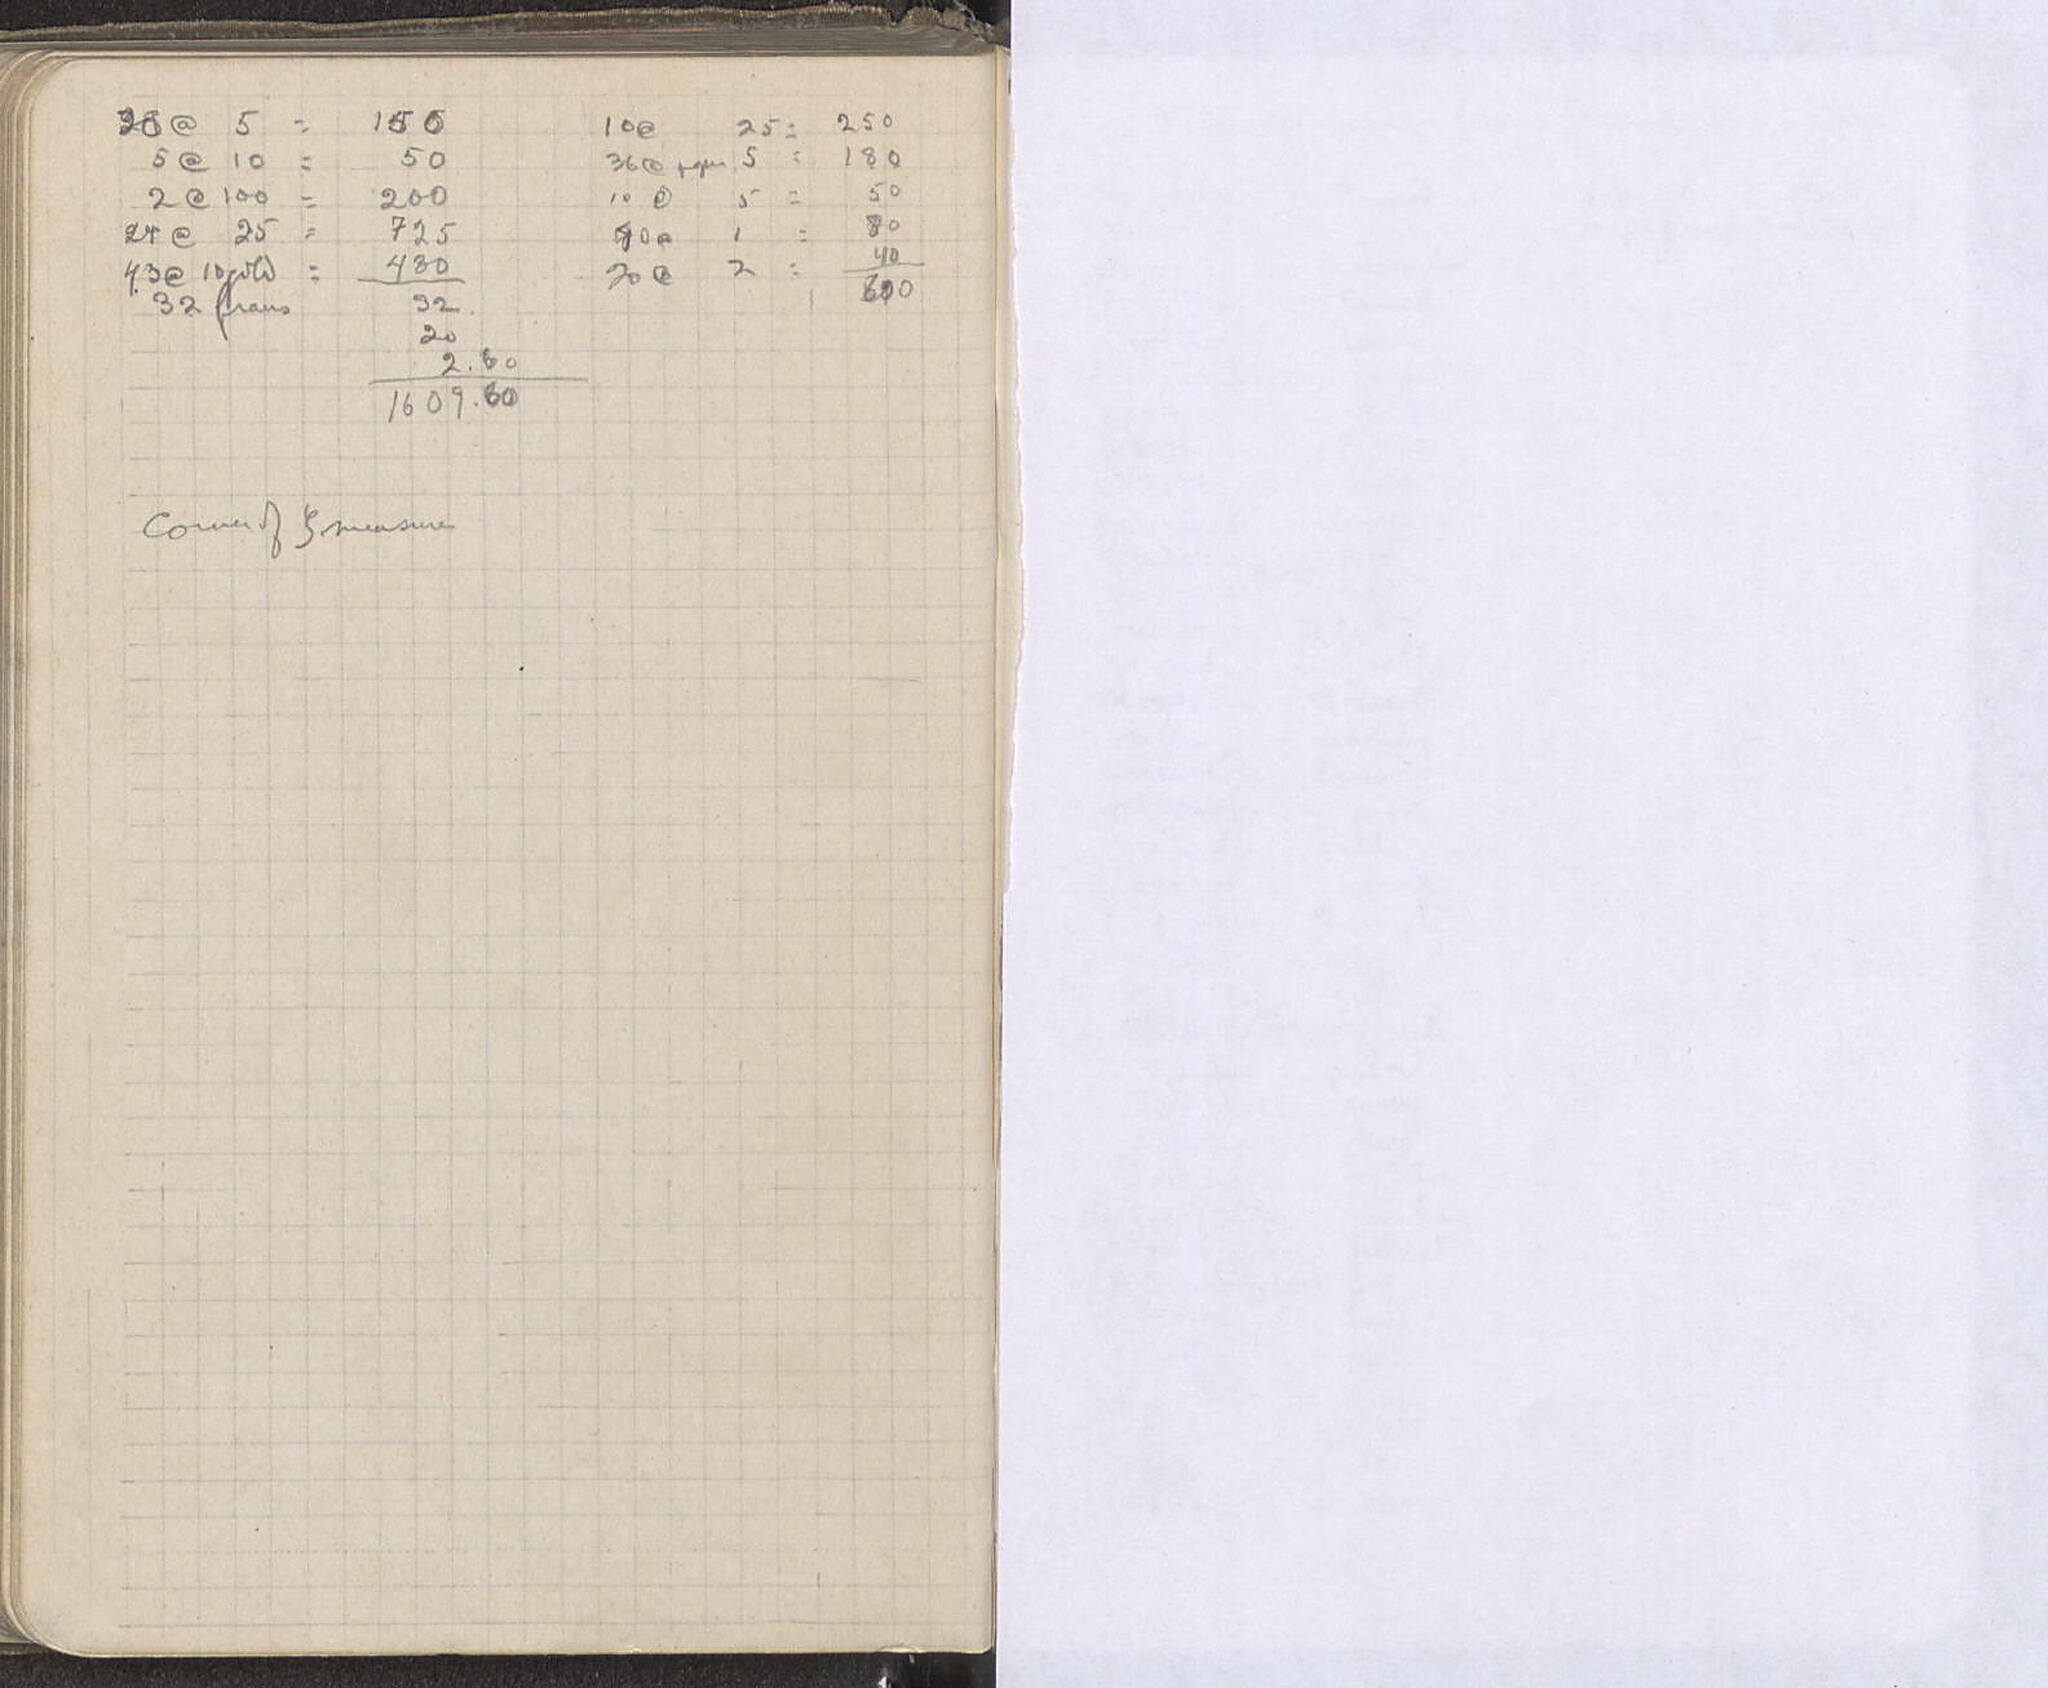 @ 5 = 150
5 @ 10 = 50
2 @ 100 = 200
@ 25 = 725
43 @ 10 gold = 430
32 francs 32
20
2.60
1609.60
10 @ 25 = 250
36 @ paper 5 = 180
10 @ 5 = 50
@ 1 = 80
20 @ 2 = 40
600
Corner of measure